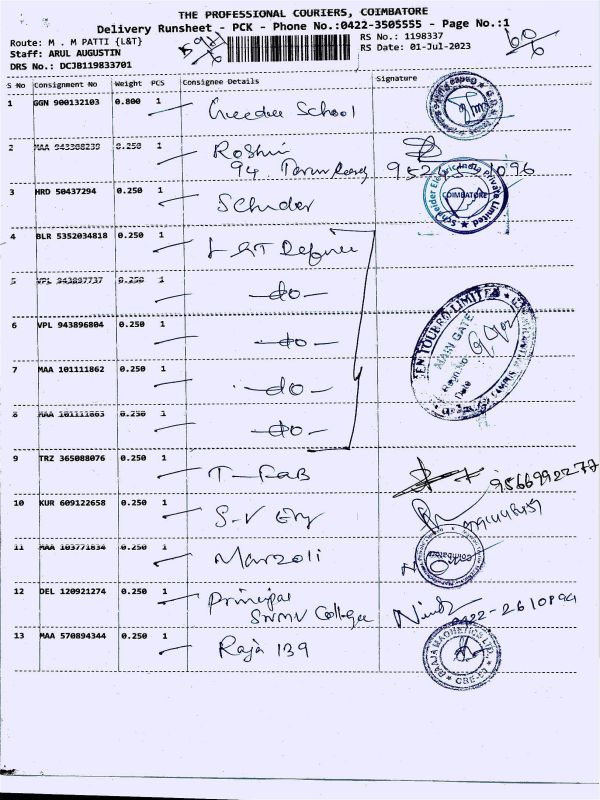 THE PROFESSIONAL COURIERS, COIMBATORE
Delivery Runsheet - PCK - Phone No.:0422-3505555 - Page No.:1
Route: M . M PATTI {L&T}
RS No.: 1198337
Staff: ARUL AUGUSTIN
RS Date: 01-Jul-2023
DRS No.: DCJB119833701
60/6
S No Consignment No Weight PCS Consignee Details Signature
1 GGN 900132103 0.800 1 Geedee School
2 MAA 943308239 0.250 1 Roshni
94,
3 HRD 50437294 0.250 1
Schneider Electric India Private Limited
COIMBATORE
4 BLR 5352034818 0.250 1 L&T Defence
5 VPL 943897737 0.250 1 -do-
6 VPL 943896804 0.250 1 -do-
MAIN GATE
Date
7 MAA 101111862 0.250 1 -do-
8 MAA 101111863 0.250 1 -do-
9 TRZ 365088076 0.250 1 T-FAB 9566992277
10 KUR 609122658 0.250 1 S-V Eng
11 MAA 103771834 0.250 1 Marzoli
Coimbatore
12 DEL 120921274 0.250 1 Principal
SNMV College 0422-2610894
13 MAA 570894344 0.250 1 Raja 139
RAAJA MAGNETICS LTD.
CBE-21